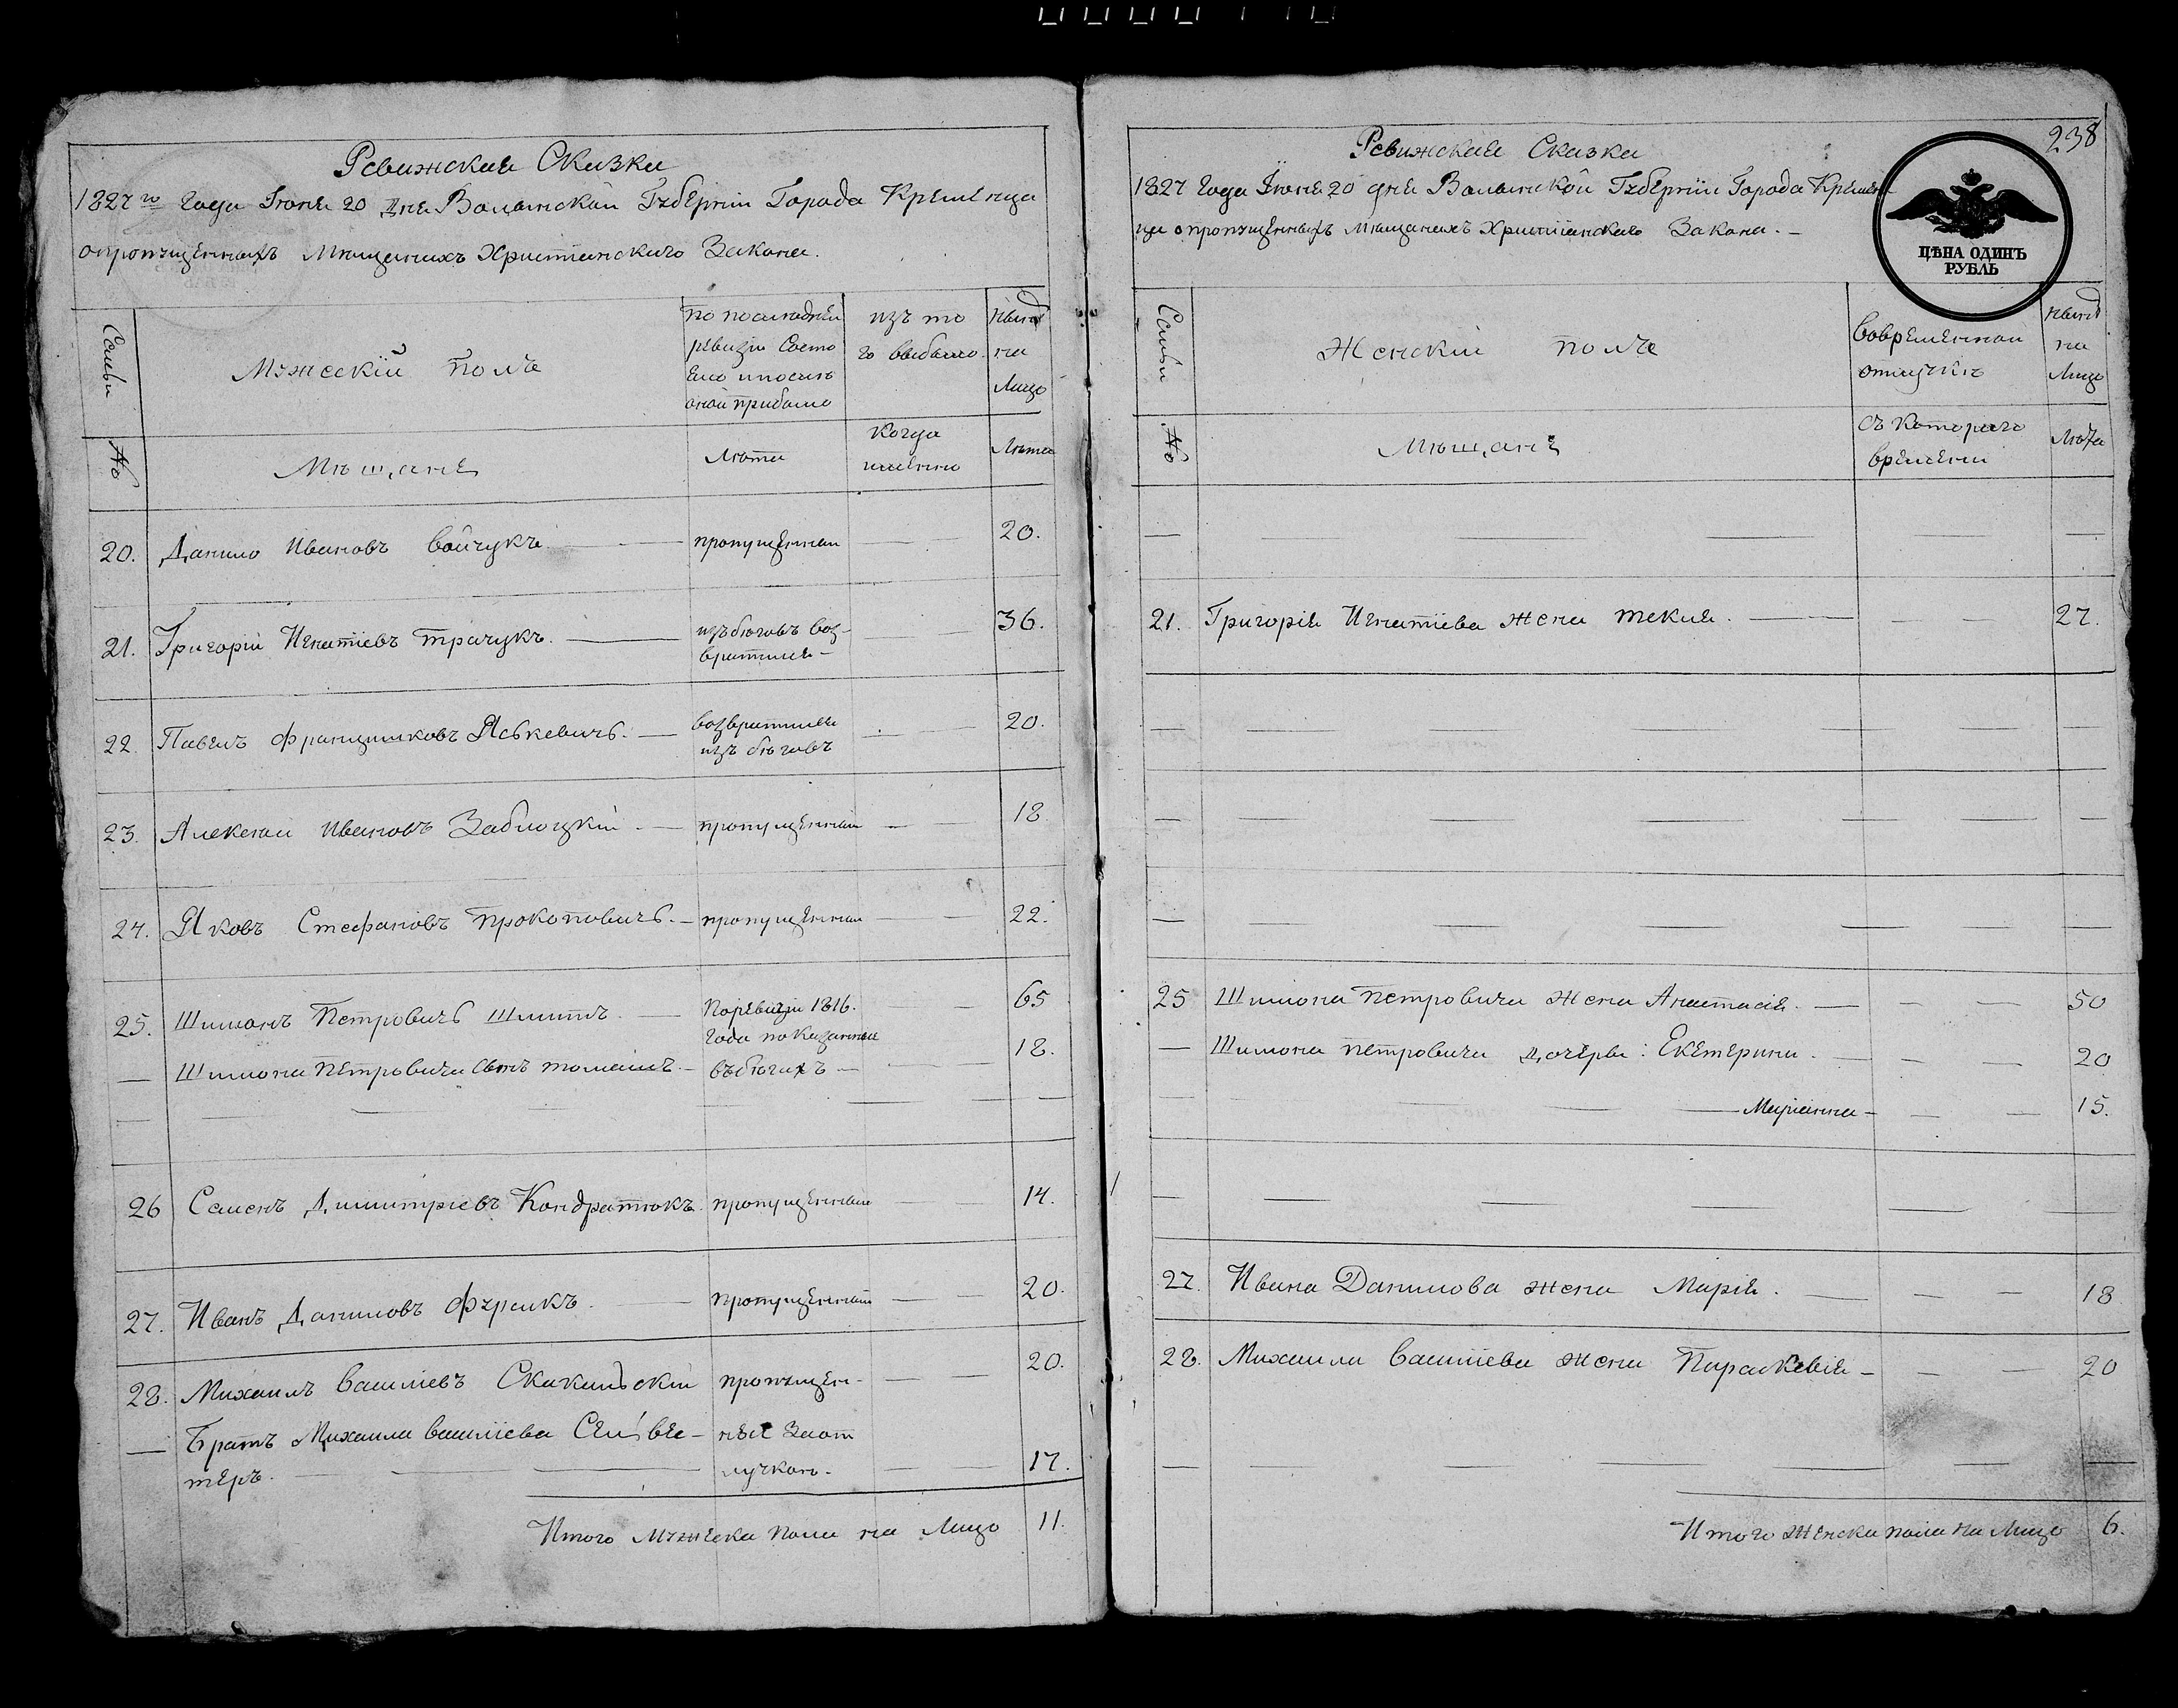 Ревижская Сказка
1827го года Іюня 20 дня Волынской Губерніи Города Кременца
о пропущенныхъ Мѣщанихъ Християнскаго Закона.
Семьи
Мужескій полъ
по последней
ревизіи состо
яло и после
оной прибыло
изъ то
го выбыло
ныне
на
Лицо
№
Мѣщане
Лѣта
когда
именно
Лѣта
20. Данило Ивановъ Войчукъ. пропущенный 20.
21. Григорій Игнатіевъ Трачукъ. изъ бѣговъ воз-
вратился 36.
22. Павелъ Францишковъ Яськевичъ. возвратился
изъ бѣговъ 20.
23. Алексей Ивановъ Заблоцкій. пропущенный 18
24. Яковъ Стефановъ Прокоповичъ. пропущенный 22.
25. Шимонъ Петровичъ Шмитъ. По ревизіи 1816. 65
года показанные
Шимона Петровича сынъ Томашъ. въ бѣгахъ 18.
26 Семенъ Димитріевъ Кондратюкъ. пропущенный 14.
27. Иванъ Даниловъ Фурсикъ. пропущенный 20.
28. Михаилъ Василіевъ Скакальскій пропущен- 20.
Братъ Михаила Василіева Сильве- ные за от
теръ. лучкою. 17.
Итого мужеска пола на лицо 11.
238
Ревижская Сказка
1827 года Іюня 20 дня Волынской Губерніи Города Кремен
ца о пропущенныхъ Мѣщанахъ Християнскаго Закона.
ЦѢНА ОДИНЪ
РУБЛЬ
Семьи
Женскій полъ
Во временной
отлучкѣ
ныне
на
Лицо
№
Мѣщане
съ котораго
времени
Лѣта
21. Григорія Игнатіева жена Текля. 27.
25 Шимона Петровича жена Анатасія. 50
Шимона Петровича дочери: Екетерина. 20
Маріанна 15.
27. Ивана Данилова жена Марія. 18
28. Михаила Василіева жена Параскевія 20
Итого женска пола на лицо 6.